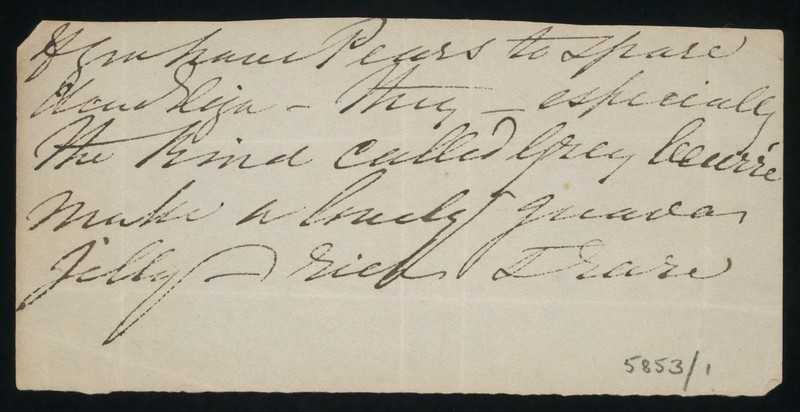 If you have Pears to spare
dear Eliza - they - especially
the kind called Grey beurré
make a lovely guava
jelly - rich & rare
5853/1